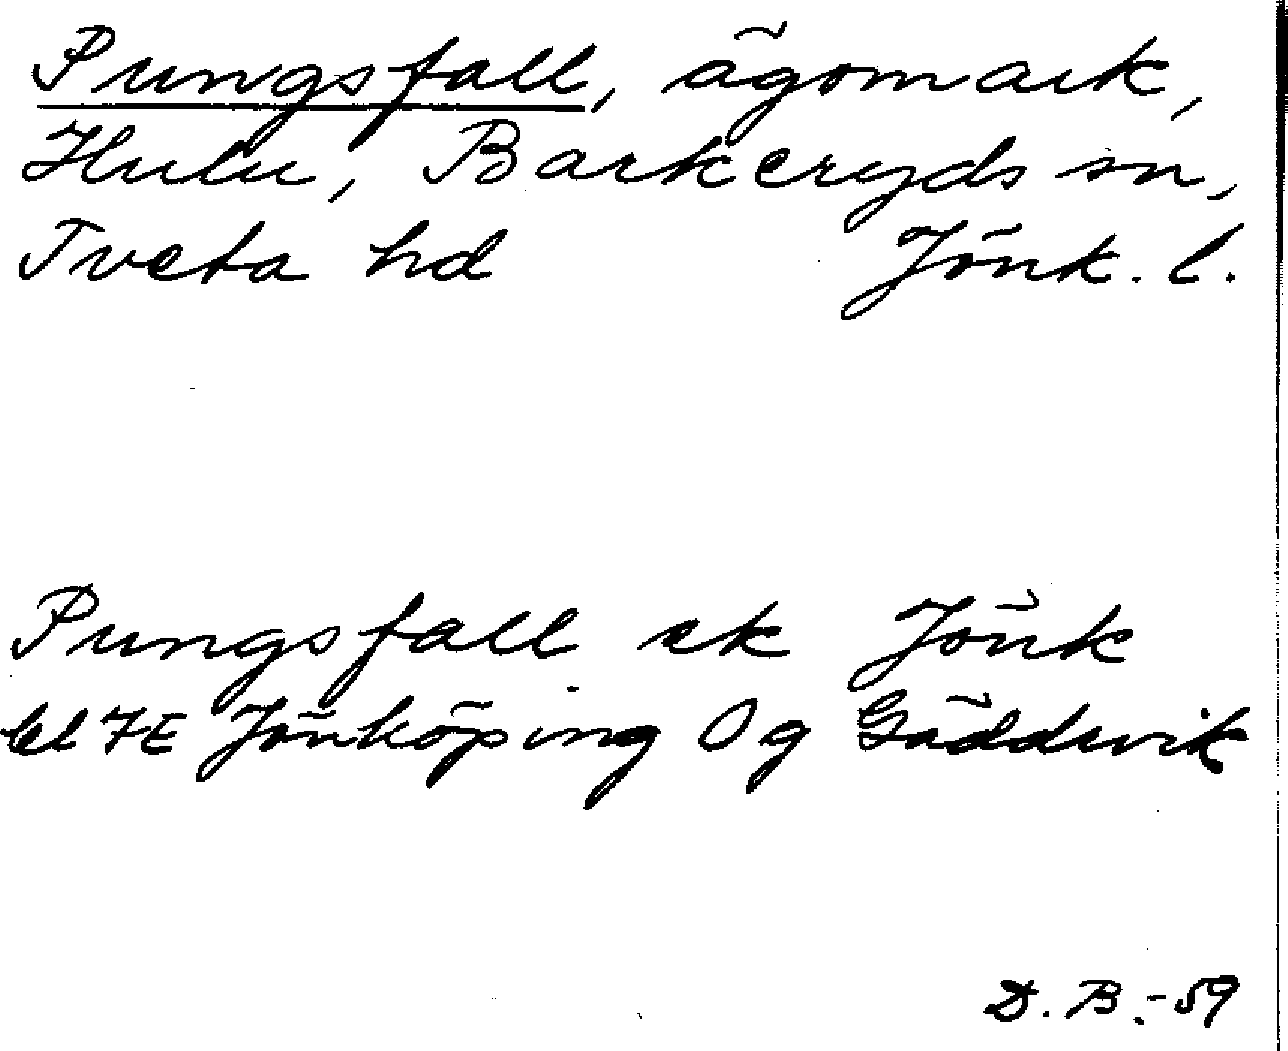 Pungsfall, ägomark,
Hulu, Barkeryds sn,
Tveta hd Jönk. l.
Pungsfall ek Jönk
bl 7E Jönköping Og Gäddevik
D. B. -59